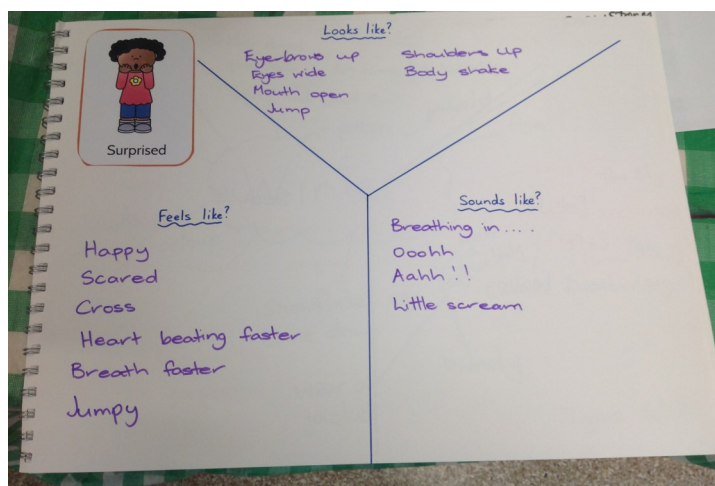 Looks like?
Eyebrows up
Eyes wide
Mouth open
Jump
Shoulders Up
Body shake
Surprised
Feels like?
Happy
Scared
Cross
Heart beating faster
Breath faster
Jumpy
Sounds like?
Breathing in....
Ooohh
Aahh!!
Little scream